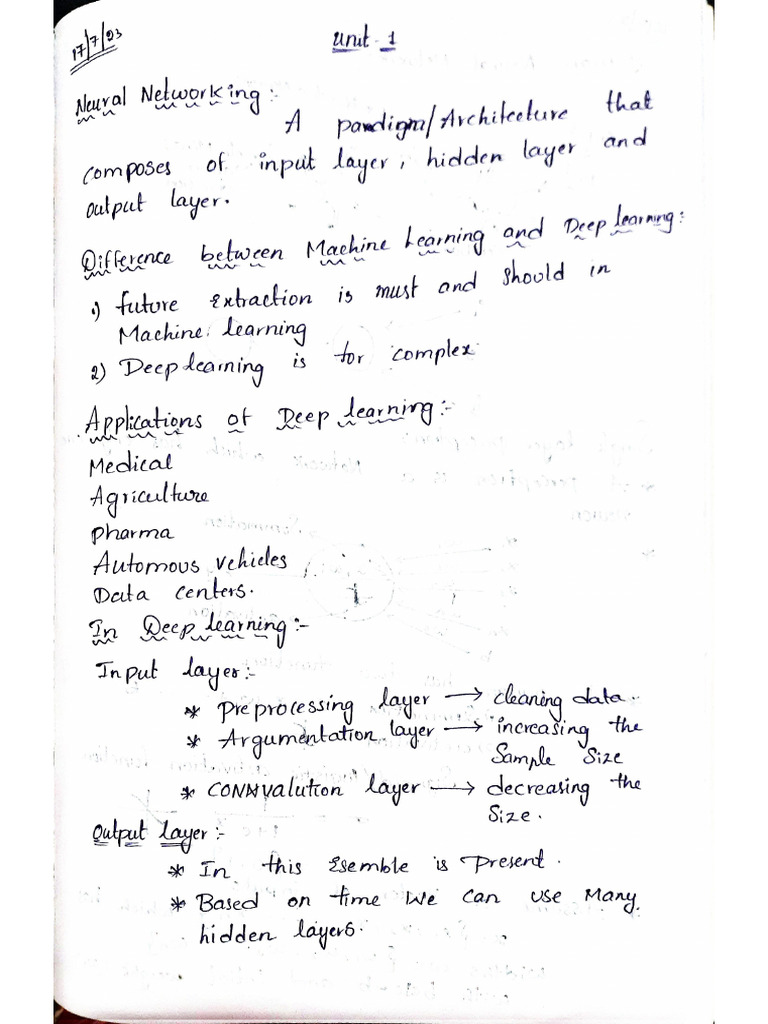 17/7/23
Unit-1
Neural Networking:-
A paradigm/Architecture that
composes of input layer, hidden layer and
output layer.
Difference between Machine Learning and Deep learning:
1) future Extraction is must and should in
Machine learning
2) Deep learning is for complex
Applications of Deep learning:-
Medical
Agriculture
Pharma
Automous vehicles
Data centers.
In Deep learning:-
Input layer:-
* Preprocessing layer → cleaning data.
* Argumentation layer → increasing the
Sample Size
* CONNvalution layer → decreasing the
Size.
Output layer:-
* In this Esemble is Present.
* Based on time We can use Many
hidden layers.